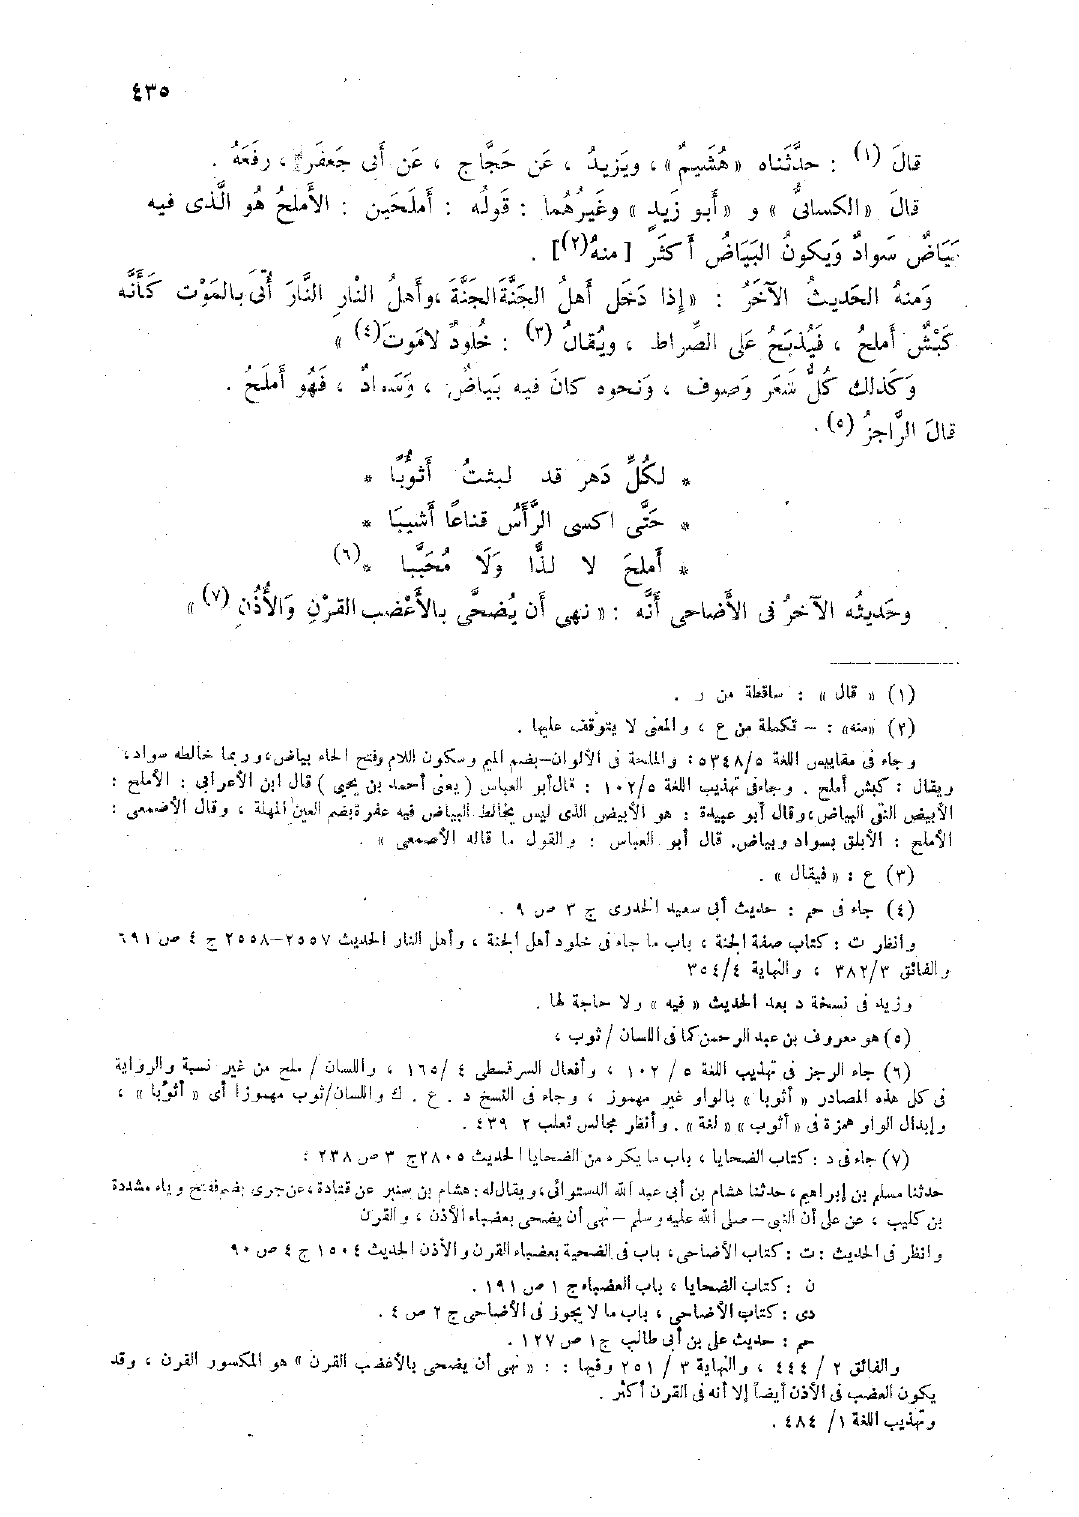 ٤٣٥
قالَ (١) : حدَّثَناه «هُشَيمٌ» ، ويَزيدُ ، عَن حَجَّاج ، عَن أَبى جَعفَر ، رفَعَهُ .
قالَ «الكسائىُّ » و «أَبو زَيدٍ» وغَيرُهُما : قَولُه : أَملَحَين : الأَملحُ هُو الَّذى فيه
بَيَاضٌ سَوادٌ وَيكونُ البَيَاضُ أَكثَر [ منهُ(٢)] .
وَمنهُ الحَديثُ الآخَرُ : «إِذا دَخَل أَهلُ الجَنَّةَ الجَنَّةَ ، وأَهلُ النارِ النَّارَ أُتىَ بالمَوْت كَأَنَّه
كَبْشٌ أَملحُ ، فَيُذبَحُ عَلى الصِّراط ، ويُقالُ (٣) : خُلودٌ لامَوتَ (٤) »
وَكَذلك كُلُّ شَعَر وَصوف ، وَنحوه كانَ فيه بَياضٌ ، وَسَوادٌ ، فَهُو أَملَحُ .
قالَ الرَّاجزُ (٥) .
* لكُلِّ دَهر قد لبثتُ أَثوُبًا *
* حَتَّى اكسى الرَّأسُ قناعًا أَشيبَا *
* أَملحَ لا لذًّا وَلَا مُحَبَّبا * (٦)
وحَديثُه الآخرُ فى الأَضاحى أَنَّه : « نهى أَن يُضحَّى بالأَعْضب القرْنِ وَالأُذُنِ (٧) »
(١) « قال » : ساقطة من ر .
(٢) «منه» : – تكملة من ع ، والمعنى لا يتوقف عليها .
وجاء فى مقاييس اللغة ٥/٣٤٨ : والملحة فى الألوان–بضم الميم وسكون اللام وفتح الحاء بياض، وربما خالطه سواد،
ويقال : كبش أملح . وجاءفى تهذيب اللغة ١٠٢/٥ : قال أبو العباس ( يعنى أحمد بن يحيى ) قال ابن الأعرابى : الأملح :
الأبيض النقى البياض، وقال أبو عبيدة : هو الأبيض الذى ليس يخالط البياض فيه عفرة بضم العين المهلة ، وقال الأصمعى :
الأملح : الأبلق بسواد وبياض. قال أبو العباس : والقول ما قاله الأصمعى » .
(٣) ع : «فيقال » .
(٤) جاء فى حم : حديث أبى سعيد الخدرى ج ٣ ص ٩ .
وانظر ت : كتاب صفة الجنة ، باب ما جاء فى خلود أهل الجنة ، وأهل النار الحديث ٢٥٥٧–٢٥٥٨ ج ٤ ص ٦٩١
والفائق ٣٨٢/٣ ، والنهاية ٣٥٤/٤
وزيد فى نسخة د بعد الحديث « فيه » ولا حاجة لها .
(٥) هو معروف بن عبد الرحمن كما فى اللسان / ثوب ،
(٦) جاء الرجز فى تهذيب اللغة ٥ / ١٠٢ ، وأفعال السرقسطى ٤ /١٦٥ ، واللسان / ملح من غير نسبة والرواية
فى كل هذه المصادر « أثوبا » بالواو غير مهموز ، وجاء فى النسخ د . ع . ك واللسان/ثوب مهموزا أى « أثؤبا » ،
وإبدال الواو همزة فى « أثوب » « لغة » . وأنظر مجالس ثعلب ٢ ٤٣٩ .
(٧) جاء فى د : كتاب الضحايا ، باب ما يكره من الضحايا الحديث ٢٨٠٥ ج ٣ ص ٢٣٨ :
حدثنا مسلم بن إبراهيم ، حدثنا هشام بن أبى عبد الله الدستوائى ، ويقال له : هشام بن سنبر عن قتادة ، عن جرى بضم ففتح وياء مشددة
بن كليب ، عن على أن النبى – صلى الله عليه وسلم – نهى أن يضحى بعضباء الأذن ، والقرن
وانظر فى الحديث : ت : كتاب الأضاحى، باب فى الضحية بعضباء القرن والأذن الحديث ١٥٠٤ ج ٤ ص ٩٠
ن : كتاب الضحايا ، باب العضباء ج ١ ص ١٩١ .
دى : كتاب الأضاحى ، باب ما لا يجوز فى الأضاحى ج ٢ ص ٤ .
حم : حديث على بن أبى طالب ج١ ص ١٢٧ .
والفائق ٢ / ٤٤٤ ، والنهاية ٣ / ٢٥١ وفيها : : « نهى أن يضحى بالأغضب القرن » هو المكسور القرن ، وقد
يكون العضب فى الأذن أيضاً إلا أنه فى القرن أكثر .
وتهذيب اللغة ١/ ٤٨٤ .